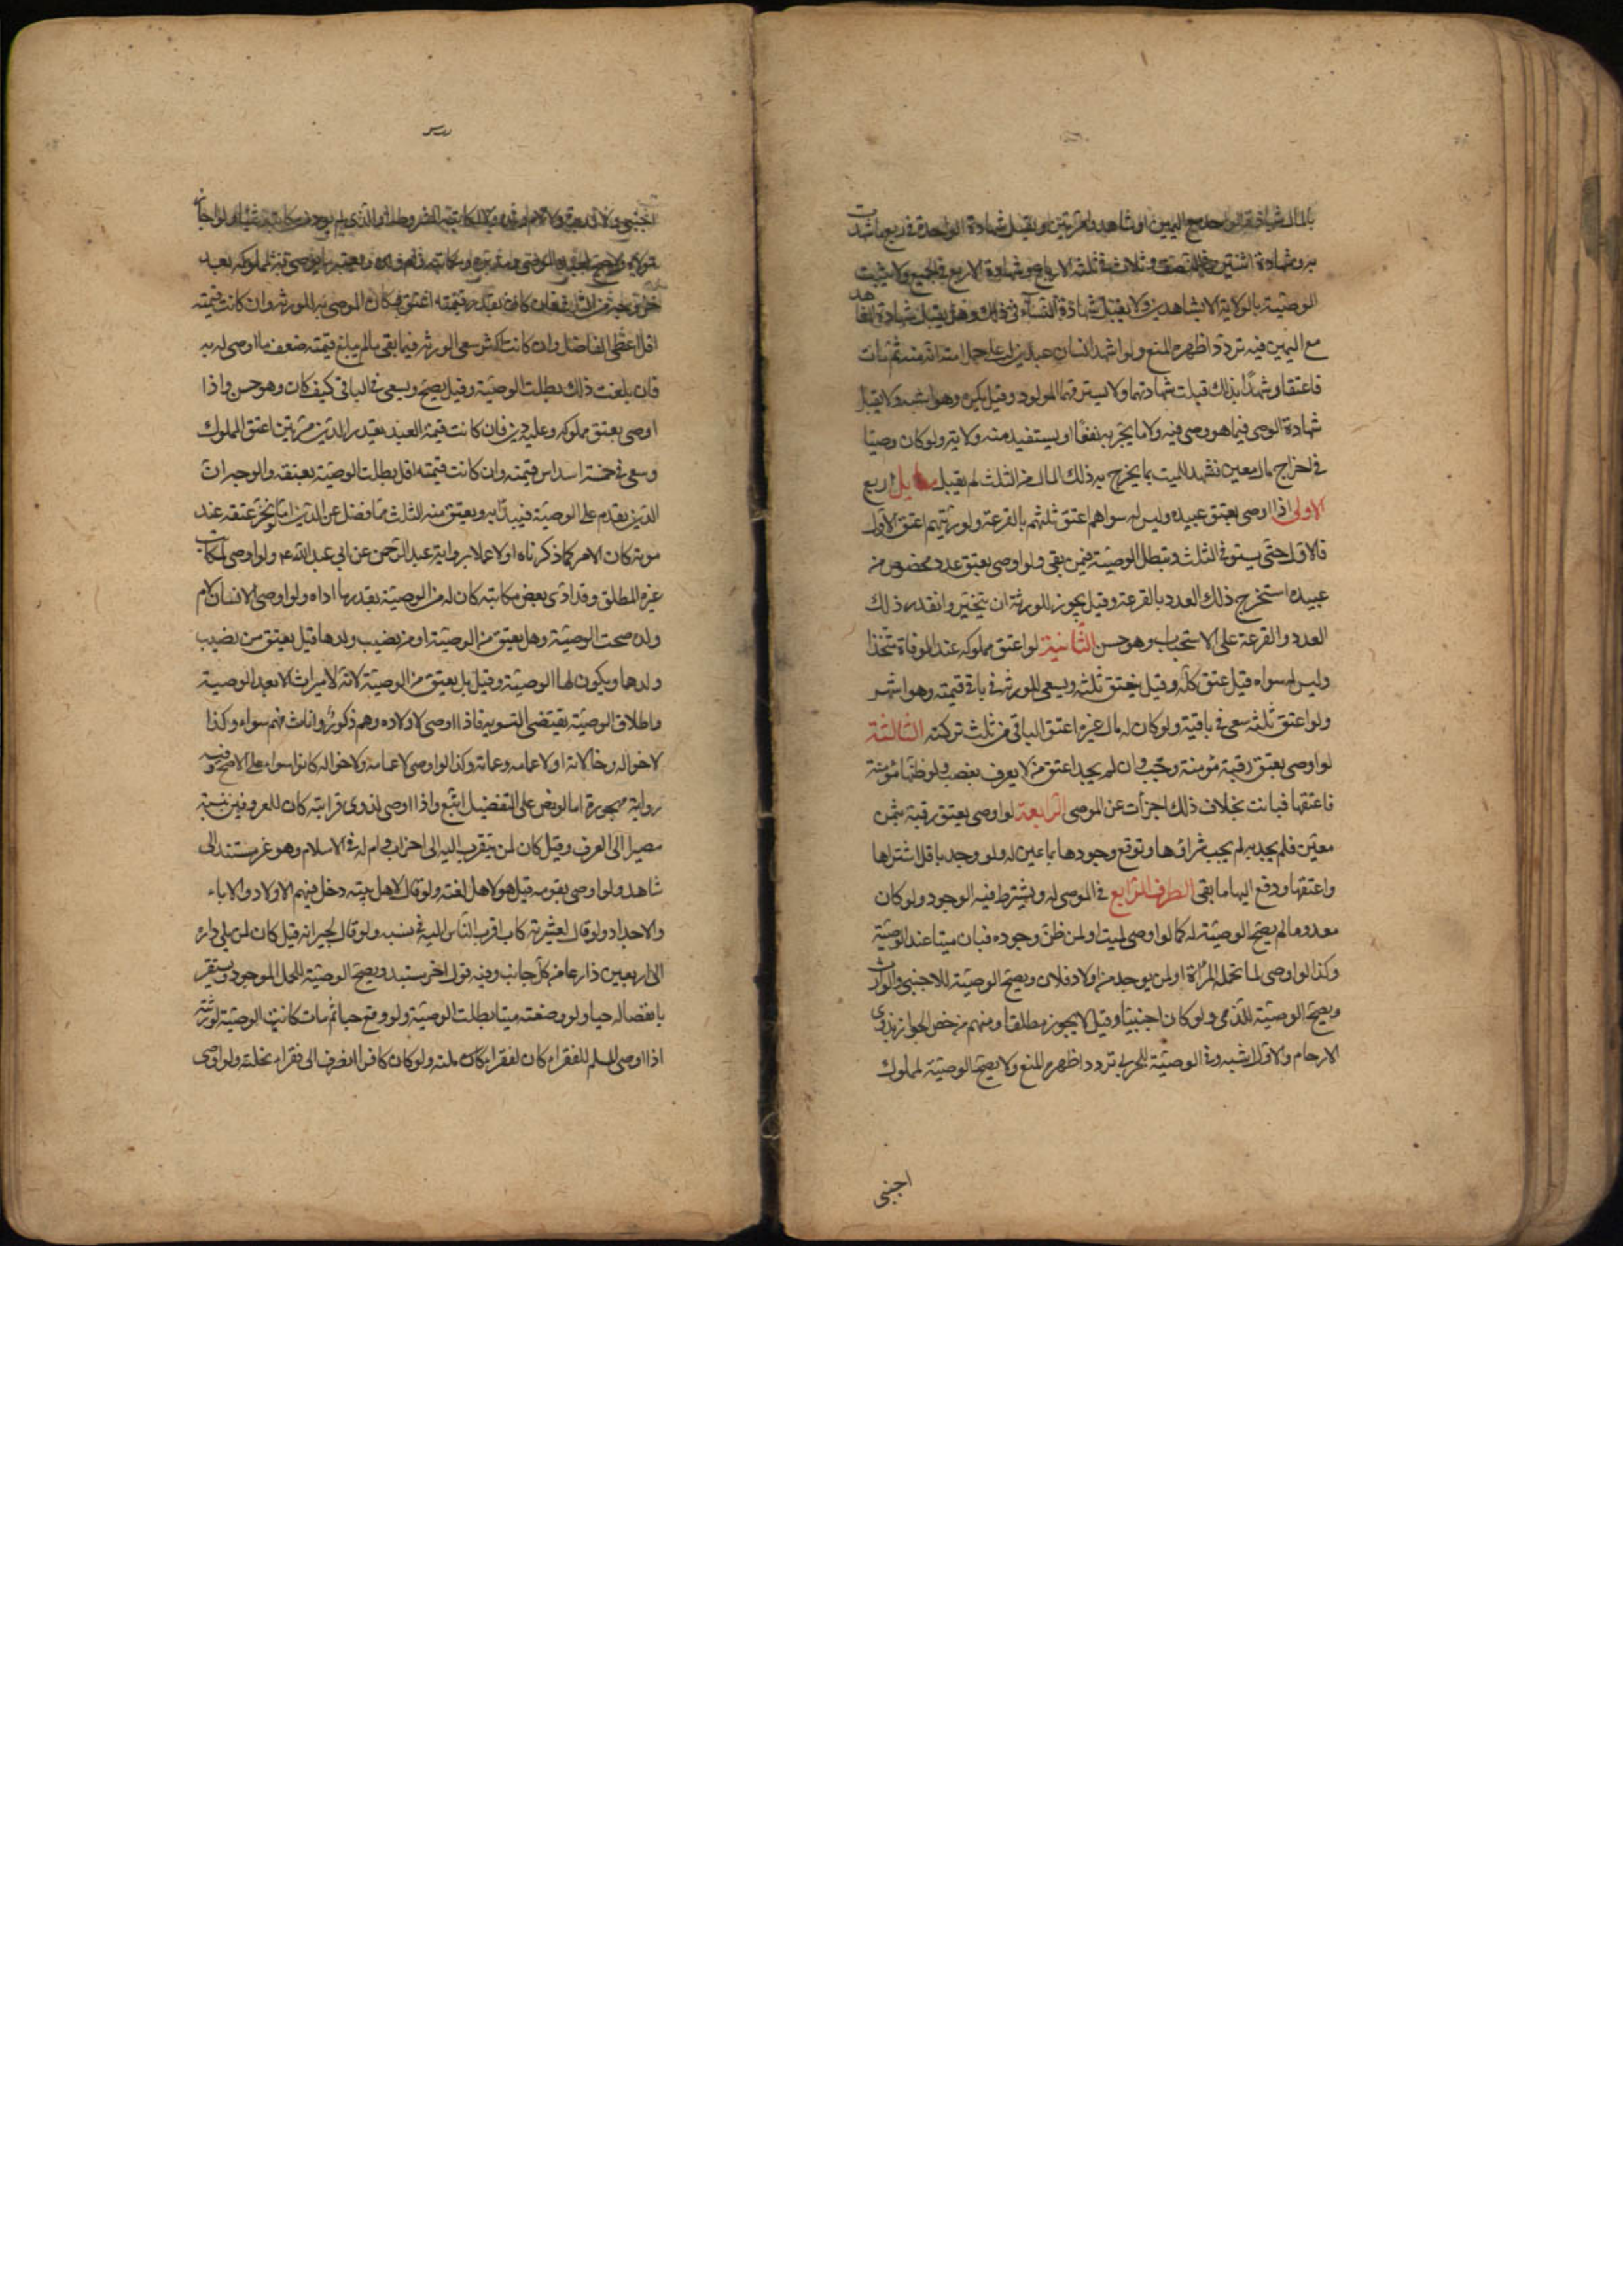 بالمال شهادة الواحد مع اليمين او شاهد وامرأتين ويقبل شهادة الواحدة في ربع ما شهدت
به وشهادة اثنتين في النصف وثلاث في ثلثة الارباع وشهادة الاربع في الجميع ولا يثبت
الوصية بالولاية الا بشاهدين ولا يقبل شهادة النساء في ذلك وهل يقبل شهادة الشاهد
مع اليمين فيه تردد اظهره المنع ولو اشهد انسان عبدين له على حمل امته انه منه ثم مات
فاعتقا وشهدا بذلك قبلت شهادتهما ولا يسترقهما المولود وقيل يكره وهو اشبه ولا يقبل
شهادة الوصي فيما هو وصي فيه ولا ما يجر به نفعا او يستفيد منه ولاية ولو كان وصيا
في اخراج مال معين فشهد للميت بما يخرج به ذلك المال من الثلث لم يقبل مسايل اربع
الاولى اذا اوصى بعتق عبيده وليس له سواهم اعتق ثلثهم بالقرعة ولو رتبهم اعتق الاول
فالاول حتى يستوفى الثلث وتبطل الوصية فيمن بقى ولو اوصى بعتق عدد مخصوص من
عبيده استخرج ذلك العدد بالقرعة وقيل يجوز للورثة ان يتخير وا بقدر ذلك
العدد والقرعة على الاستحباب وهو حسن الثانية لو اعتق مملوكه عند الوفاة منجزا
وليس له سواه قيل عتق كله وقيل يعتق ثلثه ويسعى للورثة في باقي قيمته وهو اشهر
ولو اعتق ثلثه سعى في باقيه ولو كان له مال غيره اعتق الباقي من ثلث تركته الثالثة
لو اوصى بعتق رقبة مؤمنة وجب وان لم يجد اعتق من لا يعرف بنصب ولو ظنها مؤمنة
فاعتقها فبانت بخلاف ذلك اجزأت عن الموصى الرابعة لو اوصى بعتق رقبة بثمن
معين فلم يجد به لم يجب شراؤها وتوقع وجودها بما عين له ولو وجد باقل اشتراها
واعتقها ودفع اليها ما بقى الطرف الرابع في الموصى له ويشترط فيه الوجود ولو كان
معدوما لم يصح الوصية له كما لو اوصى لميت او لمن ظن وجوده فبان ميتا عند الوصية
وكذا لو اوصى لما تحمله المرأة او لمن يوجد من اولاد فلان ويصح الوصية للاجنبي والوارث
ويصح الوصية للذمي ولو كان اجنبيا وقيل لا يجوز مطلقا ومنهم من خص الجواز بذوي
الارحام والاول اشبه وفي الوصية للحربي تردد اظهره المنع ولا يصح الوصية لمملوك
اجنبي
اجنبي ولا لمدبره ولا لام ولده ولا لمكاتبه المشروط او الذي لم يؤد من مكاتبته شيئا ولو اجاز
مولاه ويصح لعبد الموصي ومدبره ومكاتبه وام ولده ويعتبر ما يوصى به لمملوكه بعد
خروجه من الثلث فان كان بقدر قيمته اعتق وكان الموصى به للورثة وان كانت قيمته
اقل اعطى الفاضل وان كانت اكثر سعى للورثة فيما بقى ما لم يبلغ قيمته ضعف ما اوصى له به
فان بلغت ذلك بطلت الوصية وقيل يصح ويسعى في الباقي كيف كان وهو حسن واذا
اوصى بعتق مملوكه وعليه دين فان كانت قيمة العبد بقدر الدين مرتين اعتق المملوك
وسعى في خمسة اسداس قيمته وان كانت قيمته اقل بطلت الوصية بعتقه والوجه ان
الدين يقدم على الوصية فيبدأ به ويعتق منه الثلث مما فضل عن الدين اما لو نجز عتقه عند
موته كان الامر كما ذكرناه اولا عملا برواية عبد الرحمن عن ابي عبد الله ع ولو اوصى لمكاتب
غيره المطلق وقد ادى بعض مكاتبته كان له من الوصية بقدر ما اداه ولو اوصى الانسان لام
ولده صحت الوصية وهل يعتق من الوصية او من نصيب ولدها قيل يعتق من نصيب
ولدها ويكون لها الوصية وقيل بل يعتق من الوصية لانه لا ميراث الا بعد الوصية
واطلاق الوصية يقتضي التسوية فاذا اوصى لاولاده وهم ذكور واناث فهم سواء وكذا
لاخواله وخالاته او لاعمامه وعماته وكذا لو اوصى لاعمامه ولاخواله كانوا سواء على الاصح وفيه
رواية مهجورة اما لو نص على التفضيل اتبع واذا اوصى لذوي قرابته كان للمعروفين بنسبه
مصيرا الى العرف وقيل كان لمن يتقرب اليه الى اخر اب وام له في الاسلام وهو غير مستند الى
شاهد ولو اوصى لقومه قيل هو لاهل لغته ولو قال لاهل بيته دخل فيهم الاولاد والاباء
والاجداد ولو قال لعشيرته كان لاقرب الناس اليه في نسبه ولو قال لجيرانه قيل كان لمن يلي داره
الى اربعين ذراعا من كل جانب وفيه قول اخر مستبعد ويصح الوصية للحمل الموجود ويستقر
بانفصاله حيا ولو وضعته ميتا بطلت الوصية ولو وقع حيا ثم مات كانت الوصية لورثته
اذا اوصى المسلم للفقراء كان لفقراء ملته ولو كان كافرا انصرف الى فقراء نحلته ولو اوصى